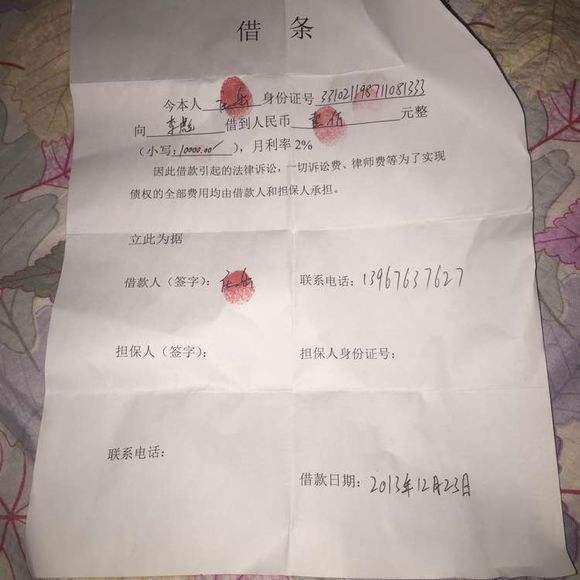 借条
今本人 身份证号 331021198711081333
向 李 借到人民币 元整
（小写：10000.00），月利率2%
因此借款引起的法律诉讼，一切诉讼费、律师费等为了实现
债权的全部费用均由借款人和担保人承担。
立此为据
借款人（签字）： 联系电话：13967637627
担保人（签字）： 担保人身份证号：
联系电话：
借款日期：2013年12月23日